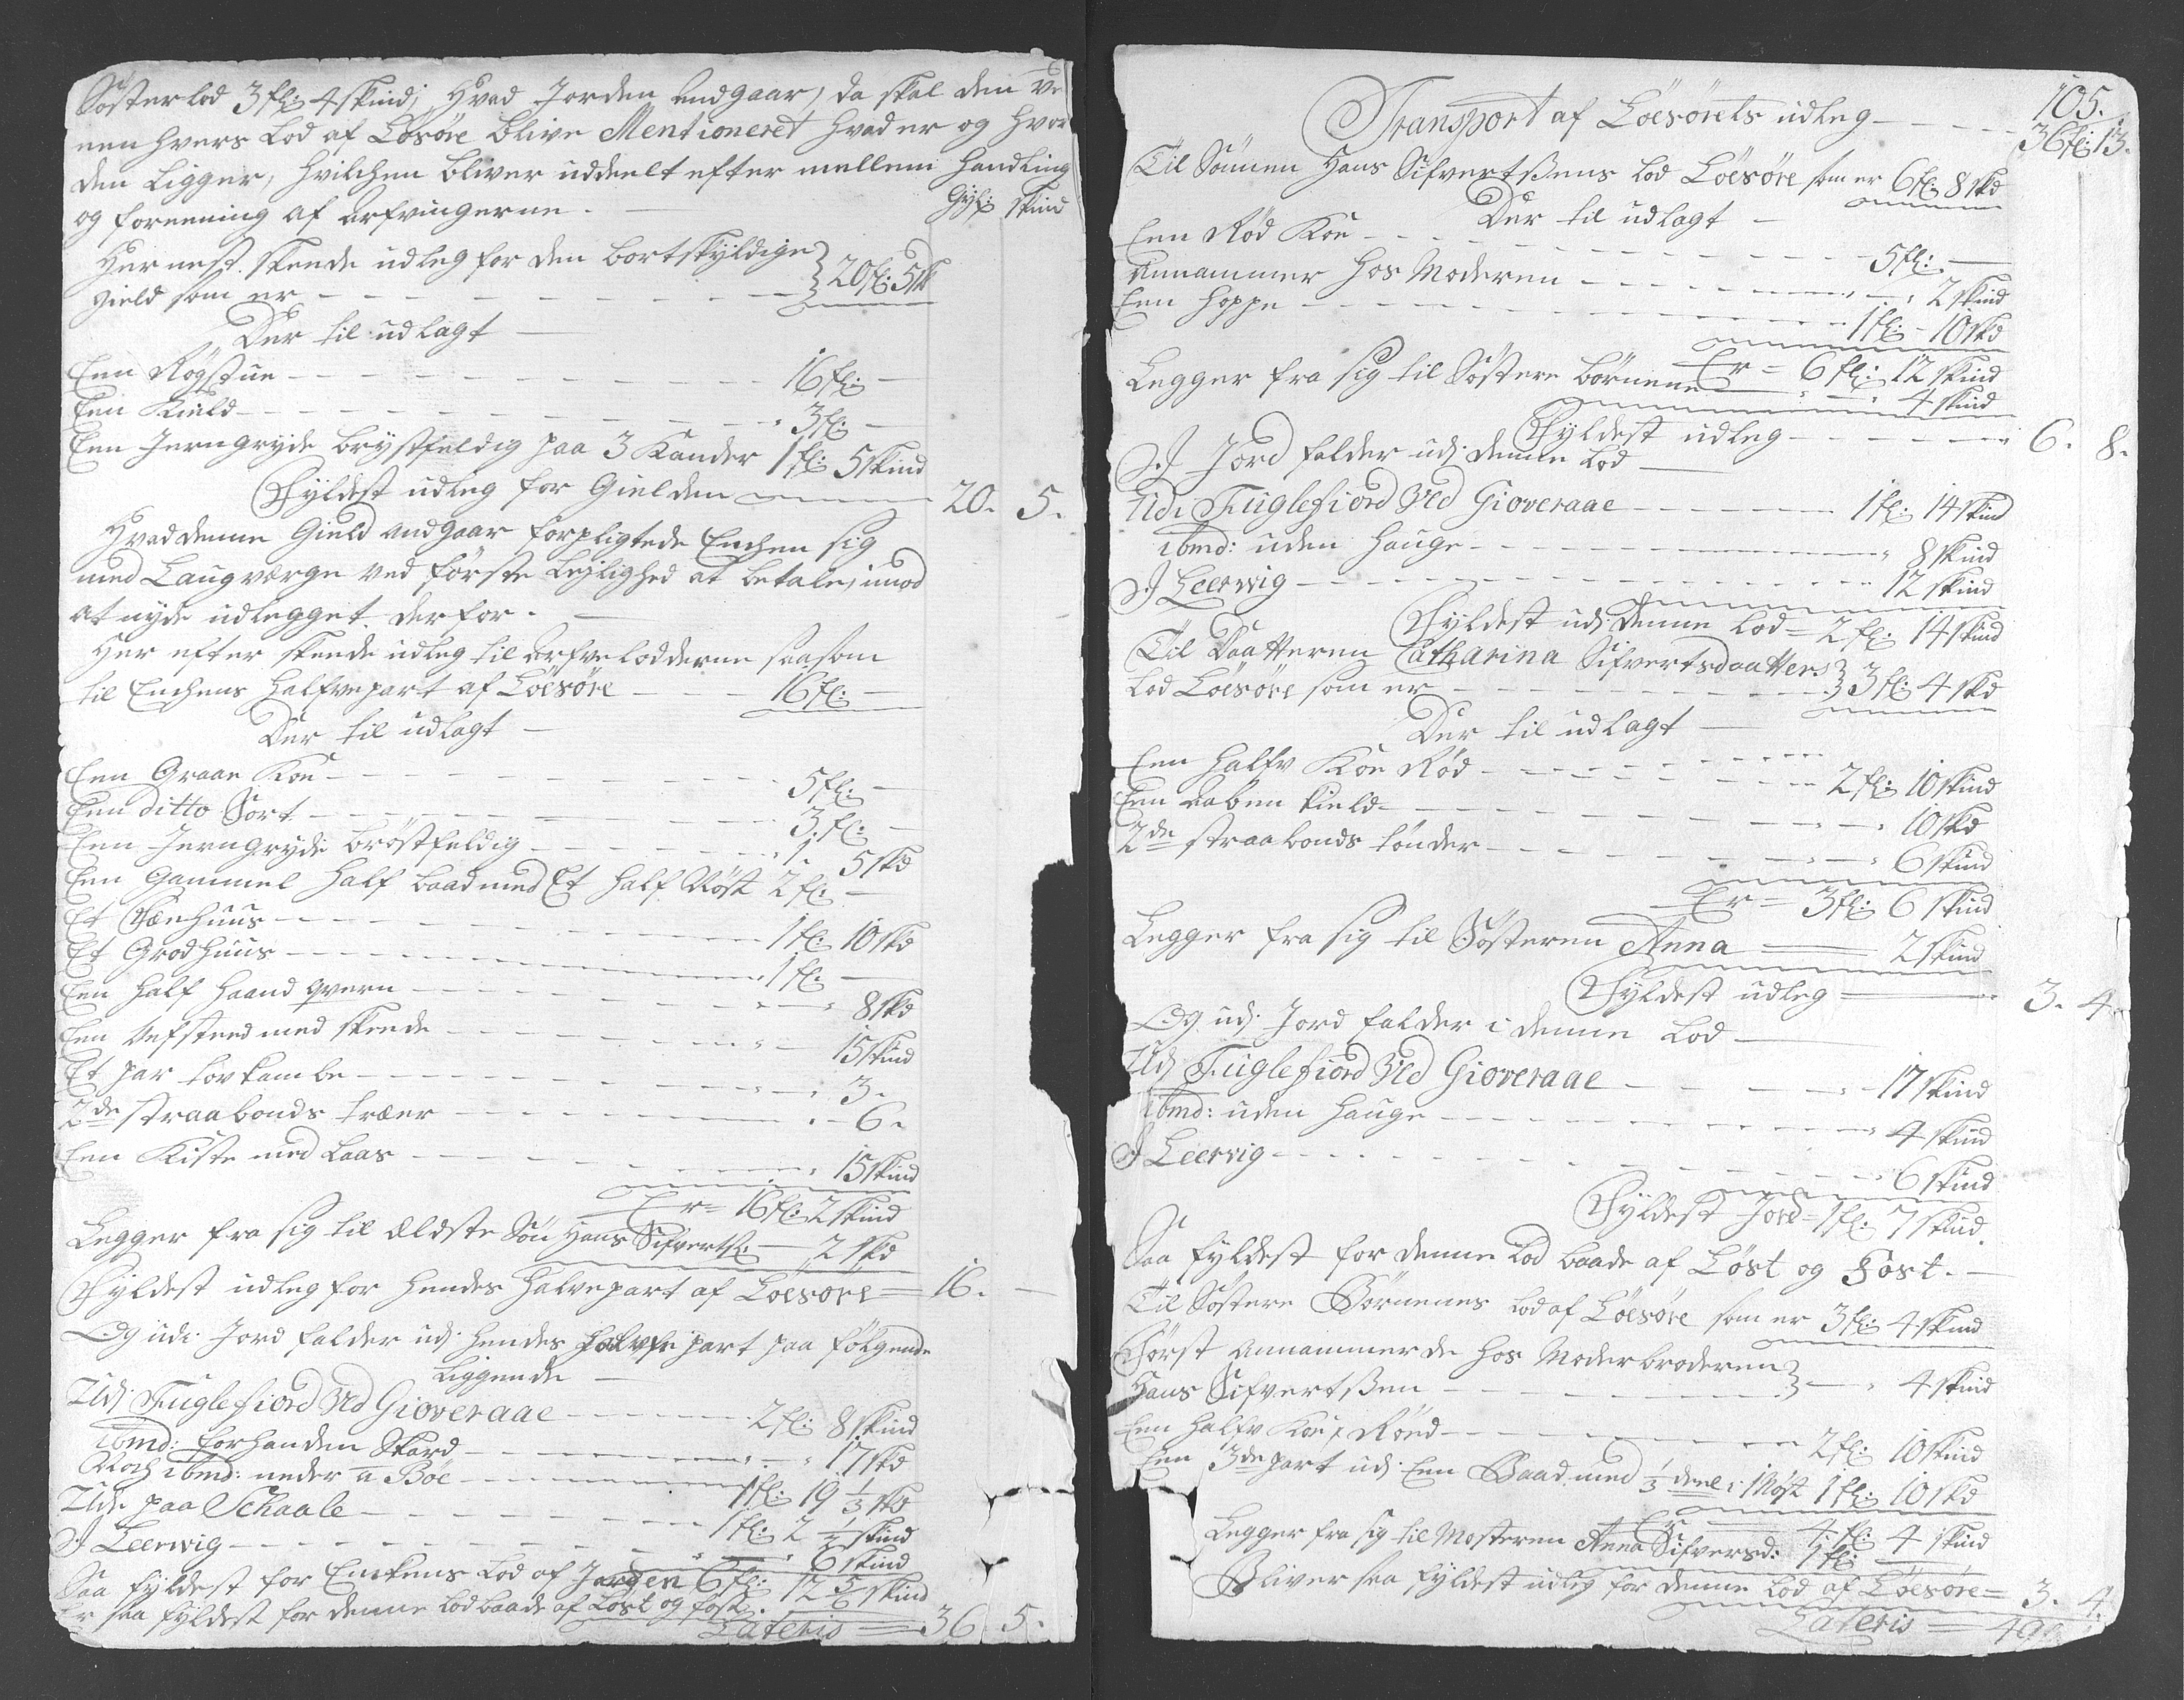 Søsterlod 3fl: 4 skind; Hvad Jorden andgaar, da skal den ve
een hvers Lod af Løsøre blive Mentioneret hvad er og hvor
den Ligger, hvilchen bliver uddeelt efter mellem Handling
og foreening af arfvingerne.
Gyl: skind
Hernest skeede udleg for den bortskyldige
Gield som er - 20fl: 5sk
Der til udlagt
Een Røgstue - 16fl:
Een Kield - 3fl:
Een Jerngryde brystfeldig paa 3 Kander 1fl: 5 skind
Fyldest udleg for Gielden 20. 5.
Hvad denne Gield andgaar forpligtede Enchen sig
med Laugværge ved første Lejlighed at betale, imod
at nyde udlegget derfor.
Her efter skeede udleg til arfvelodderne saasom
til Enchens halfvepart af Løesøre - 16fl:
Der til udlagt
Een Graae Koe - 5fl:
Een ditto Sort - 3fl:
Een Jerngryde brøstfeldig - 1. 5 skd
Een Gammel half baad med Et half Nøst 2fl:
Et Fæehuus - 1fl: 10 skd
Et Grodhuus - 1fl:
Een half haand qvern - 8 skd
Een Vefsteed med skeede - 15 skind
Et par tov kambe - 3.
2de straabonds træer - 6.
Een Kiste med Laas - 15 skind
Er = 16fl: 2 skind
Legger fra sig til ældste Søn Hans Sifvertß: - 2 skd
Fyldest udleg for hendes halvepart af Løesøre = 16.
Og udi Jord falder udj hendes halvfe part paa følgende
Liggende
Udj Fuglefiord Ved Gioveraae - 2fl: 8 skind
ibmd: forhanden Skard - 17 skd
Noch ibmd: neder u Bøe - 1fl: 19 1/3 skd
Udi paa Schaale - 1fl: 2 1/2 skind
J Leerwig - 6 skind
Saa fyldest for Enckens Lod af Jorden 6fl: 12 5/6 skind
Er saa fyldest for denne Lod baade af Løst og fost.
Lateris = 36 5.
105.
Transport af Løesørets udleg - 36fl: 13.
Til Sønnen Hans Sifvertßens Lod Løesøre som er 6fl: 8 skd
Der til udlagt
Een Rød Koe - 5fl:
Annammer hos Moderen - 2 skind
Een hoppe - 1fl: 10 skd
Er = 6fl: 12 skind
Legger fra sig til Søstere børnene - 4 skind
Fyldest udleg - 6. 8.
J Jord falder udj denne Lod
Udi Fuglefiord Ved Gioveraae - 1fl: 14 skind
ibmd: uden Hauge - 8 skind
J Leerwig - 12 skind
Fyldest udj denne Lod = 2fl: 14 skind
Til Daatteren Catharina Sifvertsdaatters
Lod Løesøre som er - 3fl: 4 skd
Der til udlagt
Een halfv Koe Rød - 2fl: 10 skind
Een aaben kield - 10 skd
2de straabonds tønder - 6 skind
Er = 3fl: 6 skind
Legger fra sig til Søsteren Anna = 2 skind
Fyldest udleg = 3. 4.
Og udj Jord falder i denne Lod
Udj Fuglefiord Ved Gioveraae - 17 skind
ibmd: uden Hauge - 4 skind
J Leervig - 6 skind
Fyldest Jord = 1fl: 7 skind.
Saa fyldest for denne Lod baade af Løst og Fost.
Til Søstere Børnenes Lod af Løesøre som er 3fl: 4 skind
Først annammerde hos Moderbroderen
Hans Sifvertßen - 4 skind
Een halfv Koe, Røed - 2fl: 10 skind
Een 3de part udj Een Baad med 1/3 deel i Nøst 1fl: 10 skd
Er - 4fl: 4 skind
Legger fra sig til Mosteren Anna Sifversd: 1fl:
Bliver saa fyldest udleg for denne Lod af Løesøre = 3. 4.
Lateris = 49